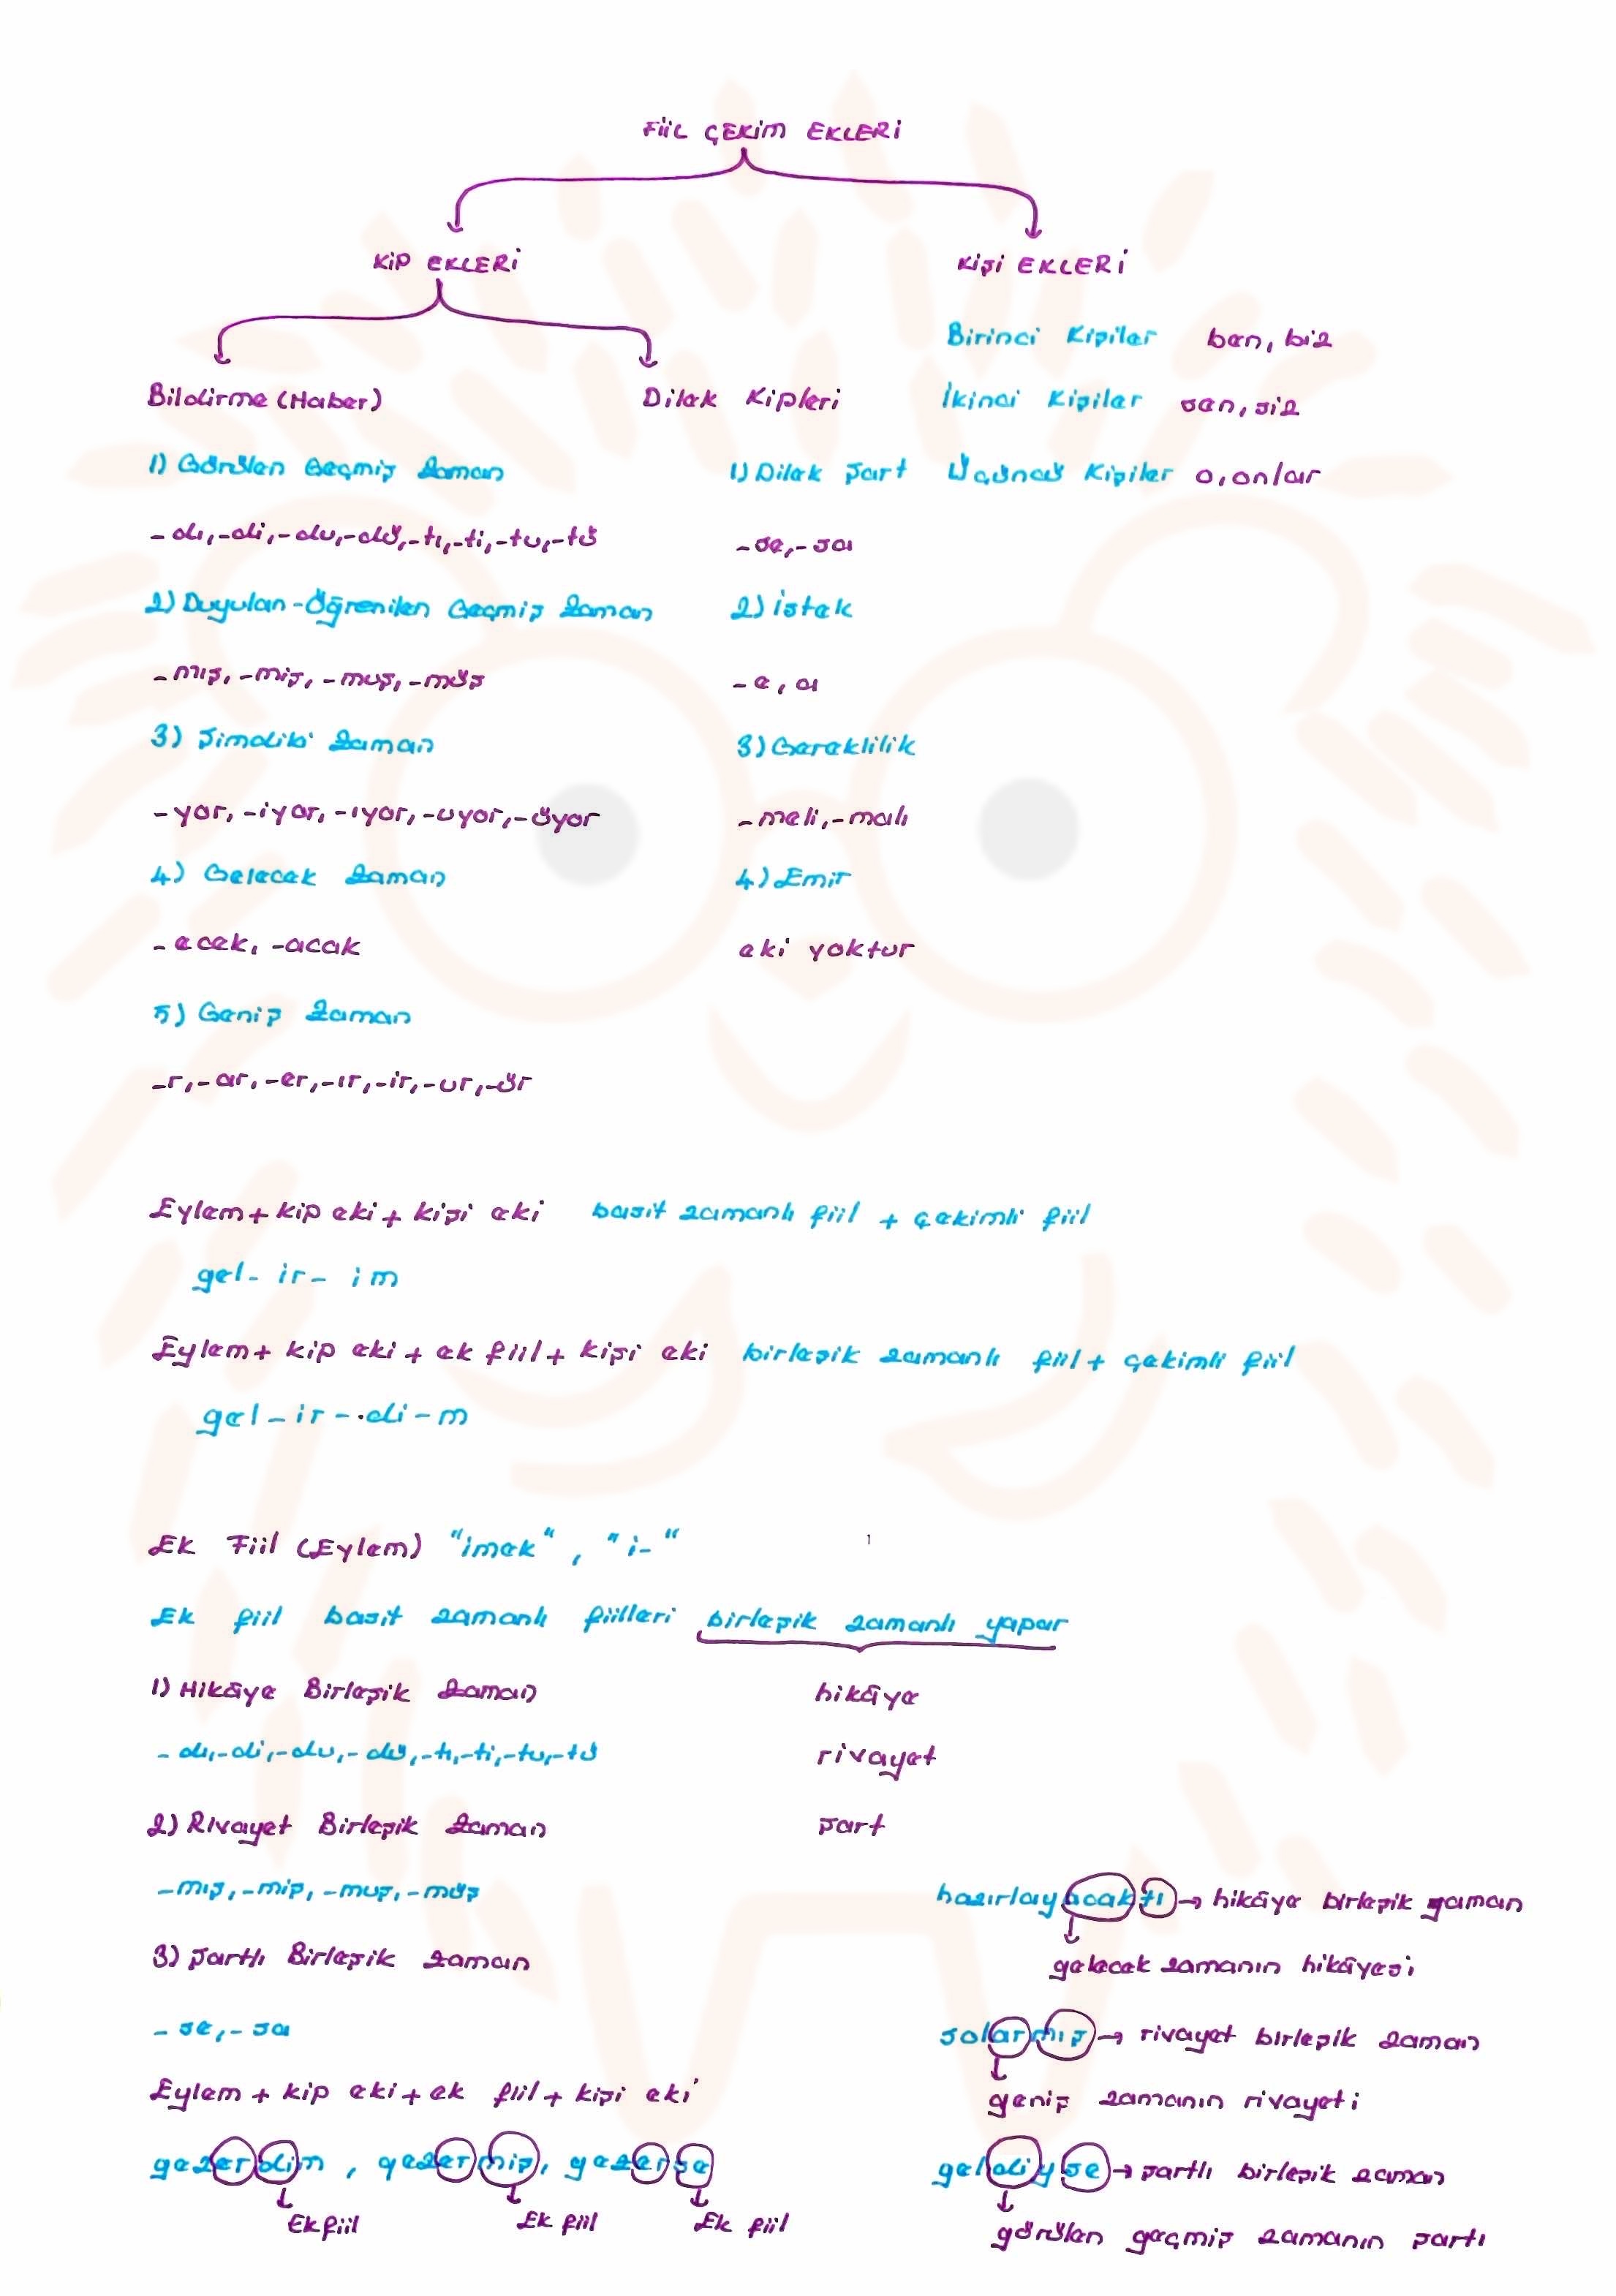 FİİL ÇEKİM EKLERİ
KİP EKLERİ
KİŞİ EKLERİ
Birinci Kişiler ben, biz
Bildirme (Haber)
Dilek Kipleri
İkinci Kişiler sen, siz
1) Görülen Geçmiş Zaman
1) Dilek Şart
Üçüncü Kişiler o, onlar
-dı,-di,-du,-dü,-tı,-ti,-tu,-tü
-se,-sa
2) Duyulan-Öğrenilen Geçmiş Zaman
2) İstek
-mış, -miş, -muş, -müş
-e, a
3) Şimdiki Zaman
3) Gereklilik
-yor, -iyor, -ıyor, -uyor, -üyor
-meli,-malı
4) Gelecek Zaman
4) Emir
-ecek, -acak
eki yoktur
5) Geniş Zaman
-r,-ar,-er,-ır,-ir,-ur,-ür
Eylem + kip eki + kişi eki basit zamanlı fiil + çekimli fiil
gel- ir- im
Eylem + kip eki + ek fiil + kişi eki birleşik zamanlı fiil + çekimli fiil
gel-ir-di-m
Ek Fiil (Eylem) "imek", "i-"
Ek fiil basit zamanlı fiilleri birleşik zamanlı yapar
1) Hikâye Birleşik Zaman
hikâye
-dı,-di,-du,-dü,-tı,-ti,-tu,-tü
rivayet
2) Rivayet Birleşik Zaman
şart
-mış, -miş, -muş, -müş
hazırlayacaktı → hikâye birleşik zaman
3) Şartlı Birleşik Zaman
gelecek zamanın hikâyesi
-se,-sa
solarmış → rivayet birleşik zaman
Eylem + kip eki + ek fiil + kişi eki
geniş zamanın rivayeti
gezerdim, gezermiş, gezerse
geldiyse → şartlı birleşik zaman
Ek fiil Ek fiil Ek fiil
görülen geçmiş zamanın şartı